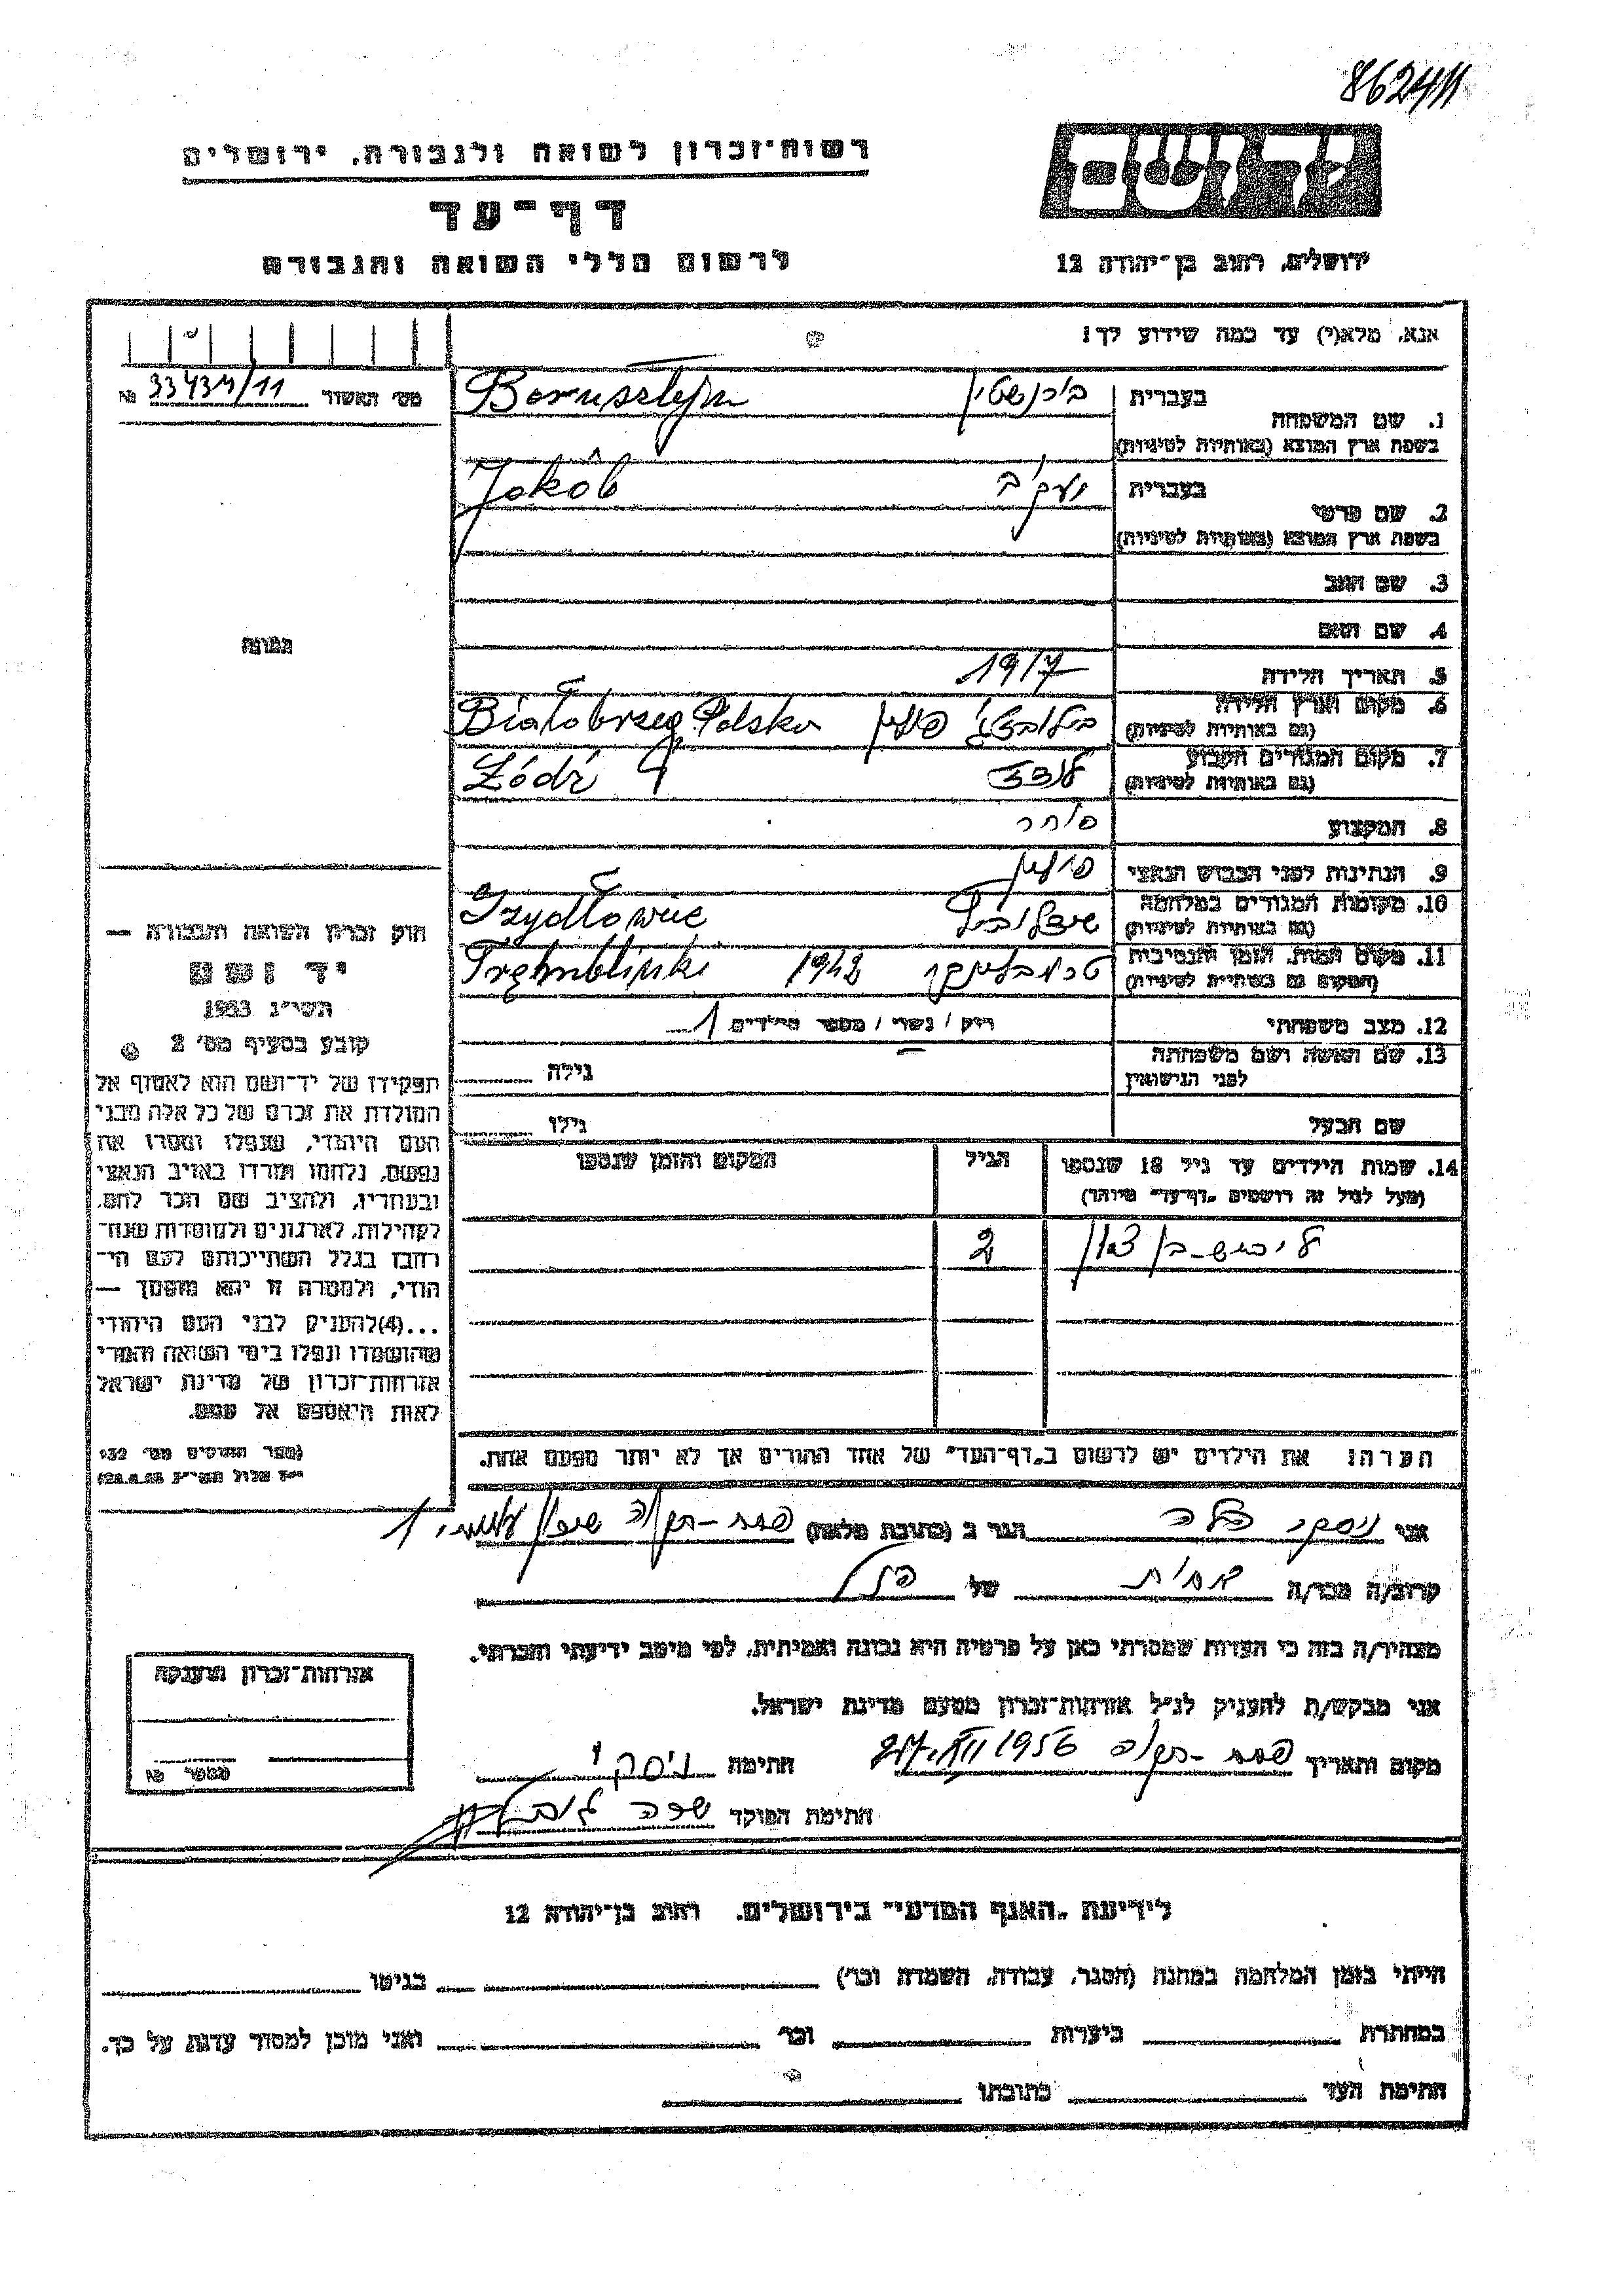 862411
יד ושם
רשות-זכרון לשואה ולגבורה, ירושלים
דף-עד
לרשום חללי השואה והגבורה
ירושלים, רחוב בן-יהודה 12
אנא, מלא(י) עד כמה שידוע לך!
מס' האשור 33434/11 №
1. שם המשפחה
בעברית
Bornsztejn
בשפת ארץ המוצא (באותיות לטיניות)
2. שם פרטי
בעברית יעקוב
Jakób
בשפת ארץ המוצא (באותיות לטיניות)
3. שם האב
4. שם האם
5. תאריך הלידה 1917
6. מקום וארץ הלידה
(גם באותיות לטיניות)
פולין Białobrzeg Polska
7. מקום המגורים הקבוע
(גם באותיות לטיניות)
לודז Łódź
8. המקצוע סוחר
9. הנתינות לפני הכבוש הנאצי פולין
10. מקומות המגורים במלחמה
(גם באותיות לטיניות)
שידלוביץ Szydłowic
11. מקום המות, הזמן והנסיבות
(המקום גם באותיות לטיניות)
טרמבלינקי 1942 Tremblinki
12. מצב משפחתי רווק / נשוי / מספר הילדים 1
13. שם האשה ושם משפחתה
לפני הנישואין
גילה
שם הבעל גילו
14. שמות הילדים עד גיל 18 שנספו
(מעל לגיל זה רושמים "דף-עד" מיוחד)
הגיל
המקום והזמן שנספו
בן ציון 2
הערה: את הילדים יש לרשום ב"דף-העד" של אחד ההורים אך לא יותר מפעם אחת.
תמונה
חוק זכרון השואה והגבורה —
יד ושם
תשי"ג 1953
קובע בסעיף מס' 2
תפקידו של יד-ושם הוא לאסוף אל
המולדת את זכרם של כל אלה מבני
העם היהודי, שנפלו ומסרו את
נפשם, נלחמו ומרדו באויב הנאצי
ובעוזריו, ולהציב שם וזכר להם,
לקהילות, לארגונים ולמוסדות שנח-
רבו בגלל השתייכותם לעם הי-
הודי, ולמטרה זו יהא מוסמך —
...(4)להעניק לבני העם היהודי
שהושמדו ונפלו בימי השואה והמרי
אזרחות-זכרון של מדינת ישראל
לאות היאספם אל עמם.
(ספר החוקים מס' 132
אני ניסקי הגר ב (כתובת מלאה) פרדס-חנה 1
קרוב/ה מכר/ה של
מצהיר/ה בזה כי העדות שמסרתי כאן על פרטיה היא נכונה ואמיתית, לפי מיטב ידיעתי והכרתי.
אני מבקש/ת להעניק לנ"ל אזרחות-זכרון מטעם מדינת ישראל.
מקום ותאריך פרדס-חנה 27.XII 1956 חתימה ניסקי
חתימת הפוקד שרה
אזרחות-זכרון הוענקה
מספר №
לידיעת "האגף המדעי" בירושלים, רחוב בן-יהודה 12
הייתי בזמן המלחמה במחנה (הסגר, עבודה, השמדה וכו') בגיטו
במחתרת ביערות וכו' ואני מוכן למסור עדות על כך.
חתימת העד כתובתו